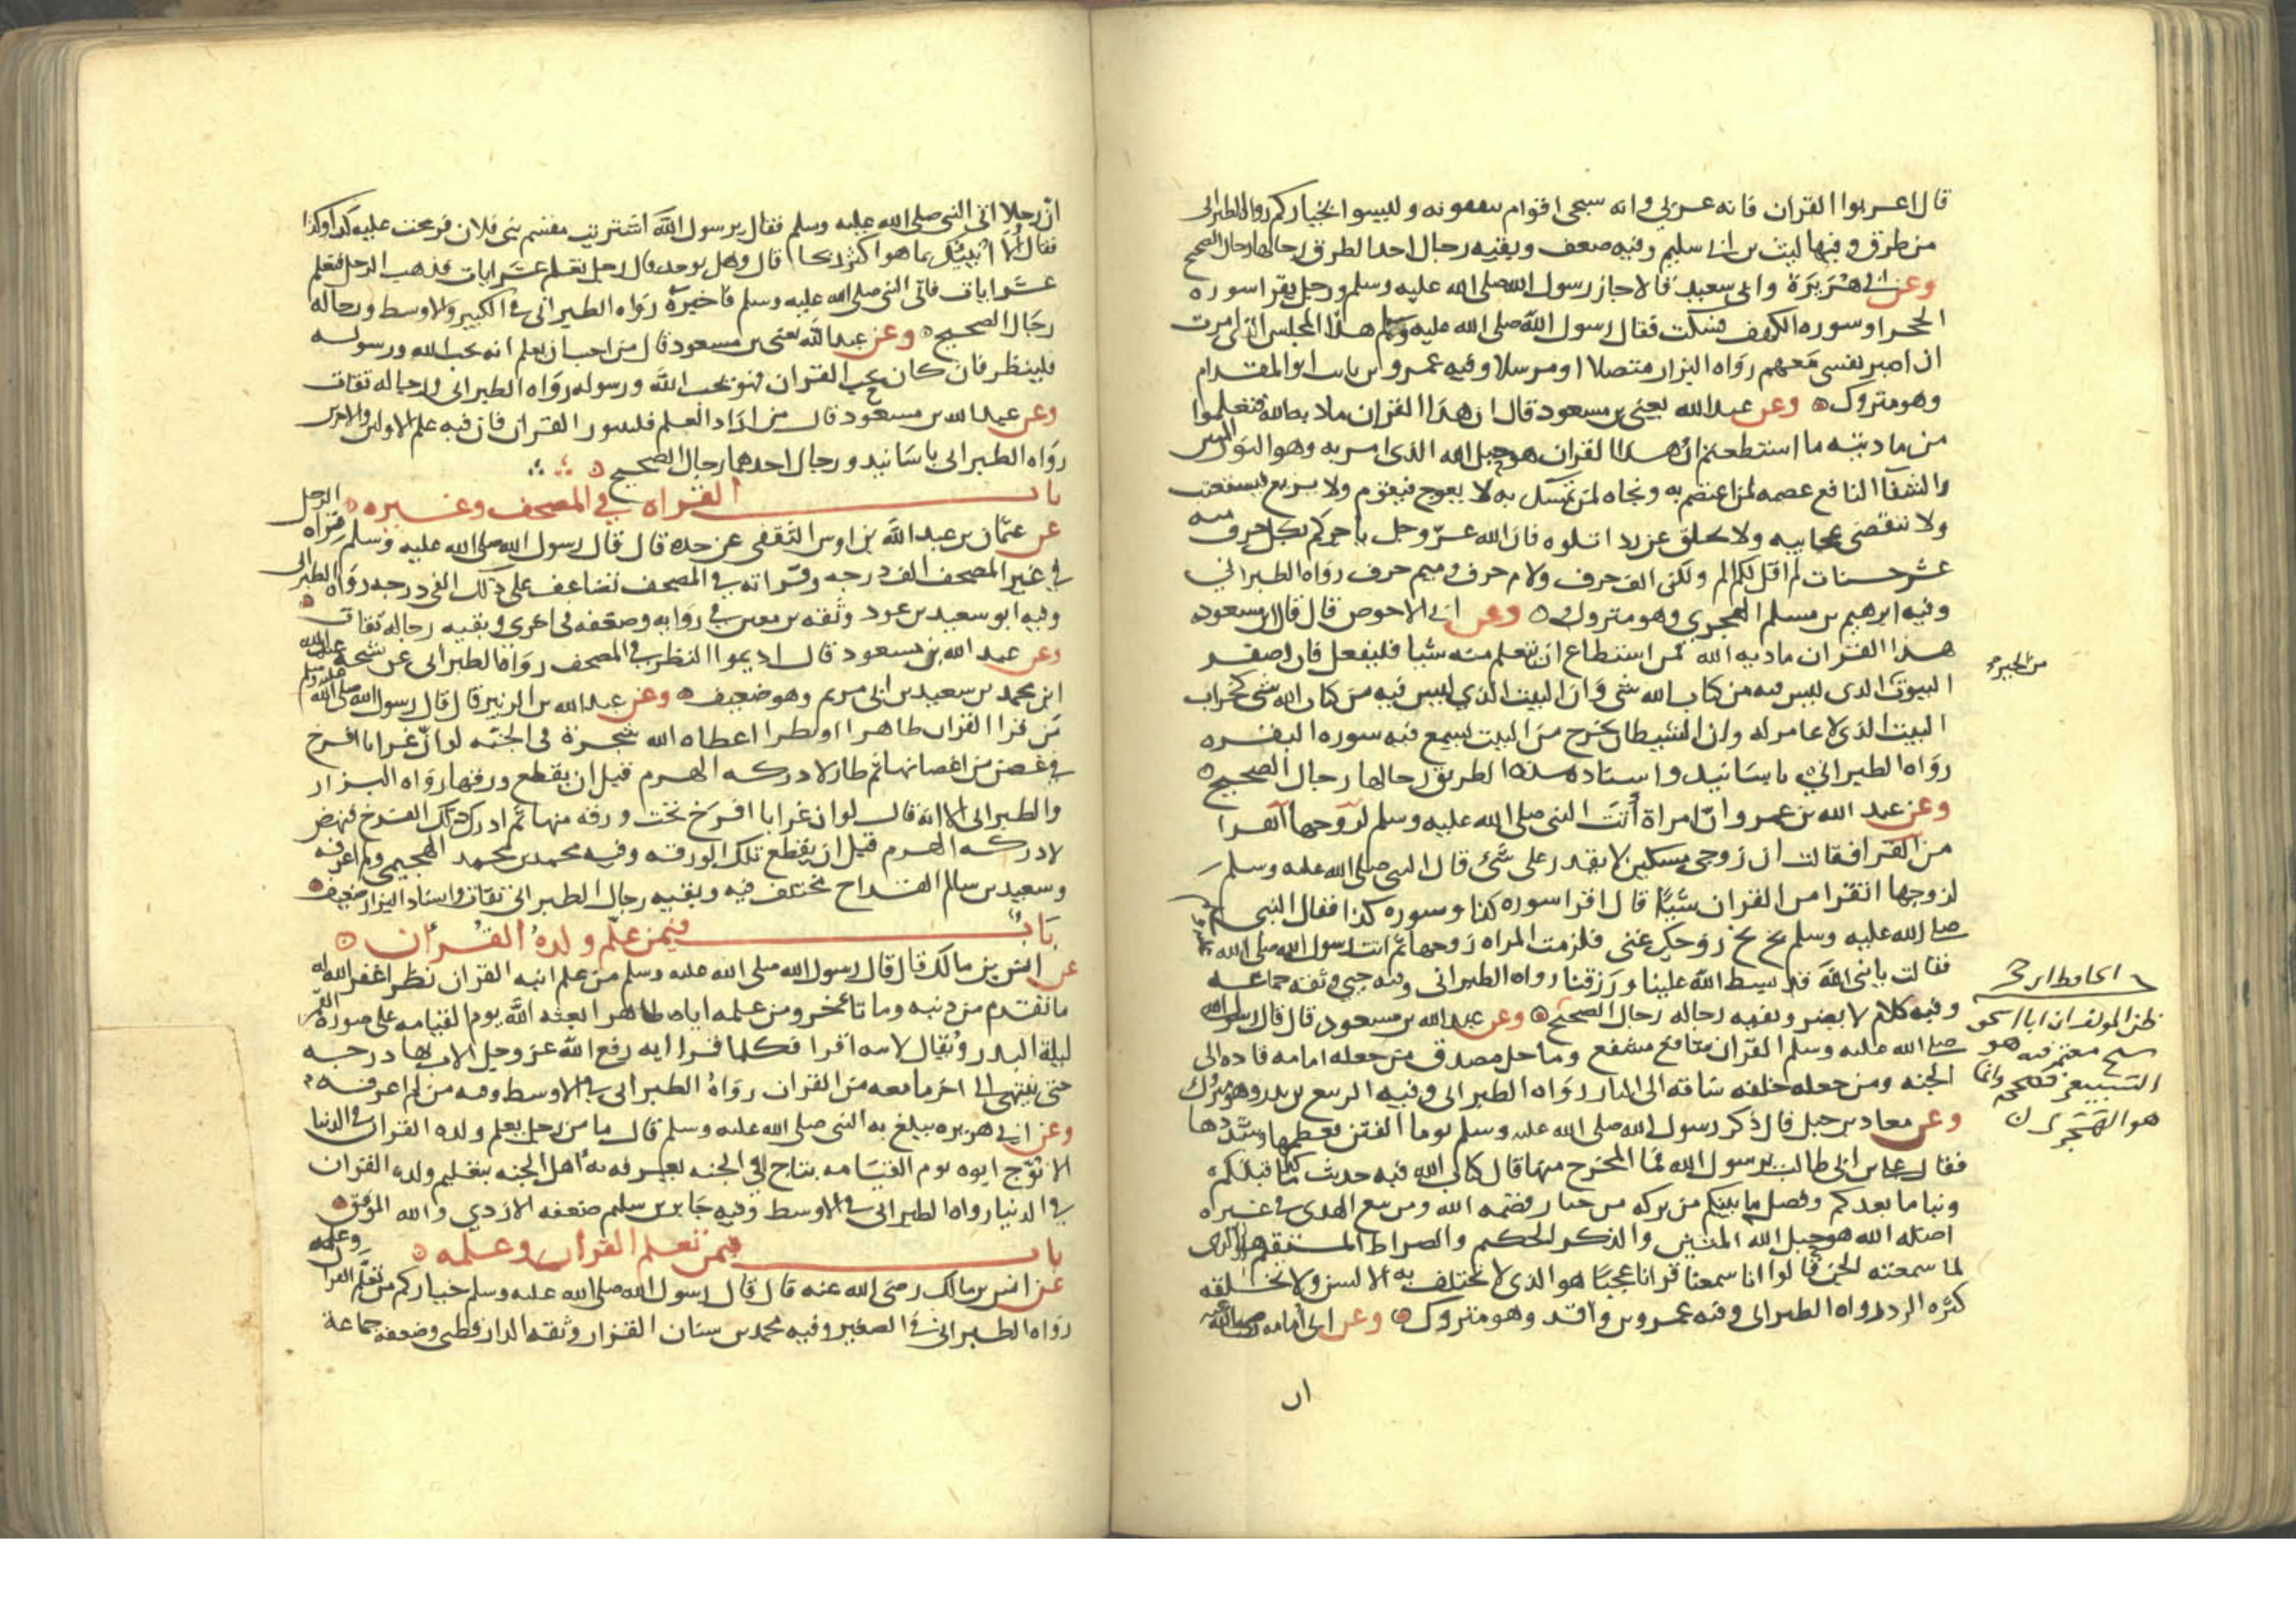 قال اعربوا القران فانه عربي وانه سيجى اقوام وليسوا بخياركم رواه الطبرانى
من طرق وفيها ليث بن ابى سليم وفيه ضعف وبقيه رجال احد الطرق رجالها رجال الصحيح
وعن ابي هريرة وابى سعيد قالا جاز رسول الله صلى الله عليه وسلم ورجل يقرا سوره
الحجر او سوره الكهف فسكت فقال رسول الله صلى الله عليه وسلم هذا المجلس الذى امرت
ان اصبر نفسى معهم رواه البزار متصلا ومرسلا وفيه عمرو بن ثابت ابو المقدام
وهو متروك وعن عبد الله يعنى بن مسعود قال ان هذا القران مادبه الله فتعلموا
من مادبته ما استطعتم ان هذا القران هو حبل الله الذى امر به وهو النور المبين
والشفا النافع عصمه لمن اعتصم به ونجاه لمن تمسك به لا يعوج فيقوم ولا يزيع فيستعتب
ولا تنقضى عجايبه ولا يخلق عن رد اتلوه فان الله عز وجل ياجركم بكل حرف منه
عشر حسنات لم اقل لكم الم ولكن الف حرف ولام حرف وميم حرف رواه الطبراني
وفيه ابرهيم بن مسلم الهجري وهو متروك وعن ابي الاحوص قال قال ابن مسعود
هذا القران مادبه الله فمن استطاع ان يتعلم منه شيا فليفعل فان اصفر
من الخير
البيوت الذى ليس فيه من كتاب الله شى وان البيت الذي ليس فيه من كتاب الله شى كخراب
البيت الذى لا عامر له وان الشيطان يخرج من البيت يسمع فيه سوره البقره
رواه الطبراني باسانيد واسناده هذه الطريق رجالها رجال الصحيح
وعن عبد الله بن عمرو ان امراة أتت النبى صلى الله عليه وسلم لزوجها اتقرا
من القرا فقالت ان زوجى مسكين لا يقدر على شئ قال النبى صلى الله عليه وسلم
لزوجها اتقرا من القران شيا قال اقرا سوره كذا وسوره كذا فقال النبى
صلى الله عليه وسلم بخ بخ زوجك غنى فلزمت المراه زوجها ثم اتت رسول الله صلى الله
فقالت يا نبى الله قد بسط الله علينا ورزقنا رواه الطبرانى وفيه حيي وثقه جماعه
وفيه كلام لا يضر وبقيه رجاله رجال الصحيح وعن عبد الله بن مسعود قال قال رسول الله
صلى الله عليه وسلم القران شافع مشفع وماحل مصدق من جعله امامه قاده الى
الجنه ومن جعله خلفه ساقه الى النار رواه الطبرانى وفيه الربيع بن بدر وهو متروك
وعن معاذ بن جبل قال ذكر رسول الله صلى الله عليه وسلم يوما الفتن فعظمها وشددها
فقال على بن ابى طالب يرسول الله فما المخرج منها قال كتاب الله فيه حديث ما قبلكم
ونبا ما بعدكم وفصل ما بينكم من تركه من جبار يقصمه الله ومن يبتغ الهدى في غيره
اضله الله هو حبل الله المتين والذكر الحكيم والصراط المستقيم هو الذى
لما سمعته الجن قالوا انا سمعنا قرانا عجبا هو الذي لا تختلف به الالسن ولا تخلقه
كثره الرد رواه الطبرانى وفيه عمرو بن واقد وهو متروك وعن ابى امامه
الحافظ ابن حجر
ظن المولف ان ابا اسحق
هو
التبيعى
هو الهجرى
ان
ان رجلا اتى النبى صلى الله عليه وسلم فقال يرسول الله اشتريت مقسم بنى فلان فربحت عليه كذا وكذا
فقال الا انبيك بما هو اكثر ربحا قال وهل يوجد قال رجل تعلم عشر ايات فذهب الرجل فتعلم
عشر ايات فاتى النبى صلى الله عليه وسلم فاخبره رواه الطبرانى فى الكبير والاوسط ورجاله
رجال الصحيح وعن عبد الله يعنى بن مسعود قال من احب ان يعلم انه يحب الله ورسوله
فلينظر فان كان يحب القران فهو يحب الله ورسوله رواه الطبرانى ورجاله ثقات
وعن عبد الله بن مسعود قال من اراد العلم فليثور القران فان فيه علم الاولين والاخرين
رواه الطبرانى باسانيد ورجال احدهما رجال الصحيح
باب القراه في المصحف وغيره
عن عثمان بن عبد الله بن اوس الثقفى عن جده قال قال رسول الله صلى الله عليه وسلم قراه الرجل
في غير المصحف الف درجه وقراته في المصحف تضاعف على ذلك الفى درجه رواه الطبرانى
وفيه ابو سعيد بن عود وثقه بن معين في روايه وضعفه فى اخرى وبقيه رجاله ثقات
وعن عبد الله بن مسعود قال اديموا النظر في المصحف رواه الطبرانى عن شيخه عبد الله
ابن محمد بن سعيد بن ابى مريم وهو ضعيف وعن عبد الله بن الزبير قال قال رسول الله صلى الله عليه وسلم
من قرا القران ظاهرا او نظرا اعطاه الله شجرة فى الجنه لو ان غرابا افرخ
في غصن من اغصانها ثم طار لادركه الهرم قبل ان يقطع ورقها رواه البزار
والطبرانى الا انه قال لو ان غرابا افرخ تحت ورقه منها ثم ادرك ذلك الفرخ فنهض
لادركه الهرم قبل ان يقطع تلك الورقه وفيه محمد بن محمد الهجيمى ولم اعرفه
وسعيد بن سالم القداح مختلف فيه وبقيه رجال الطبرانى ثقات واسناد البزار ضعيف
باب فيمن علم ولده القرأن
عن انس بن مالك قال قال رسول الله صلى الله عليه وسلم من علم ابنه القران نظرا غفر الله له
ما تقدم من ذنبه وما تاخر ومن علمه اياه ظاهرا بعثه الله يوم القيامه على صورة القمر
ليلة البدر ويقال لابنه اقرا فكلما قرا ايه رفع الله عز وجل الاب بها درجه
حتى ينتهى الى اخر ما معه من القران رواه الطبرانى في الاوسط وفيه من لم اعرفه
وعن ابي هريره يبلغ به النبى صلى الله عليه وسلم قال ما من رجل يعلم ولده القران فى الدنيا
الا توج ابوه يوم القيامه بتاج في الجنه يعرفه به اهل الجنه بتعليم ولده القران
في الدنيا رواه الطبرانى فى الاوسط وفيه جابر بن سليم ضعفه الازدي والله الموفق
باب فيمن تعلم القران وعلمه
عن انس بن مالك رضى الله عنه قال قال رسول الله صلى الله عليه وسلم خياركم من تعلم القران وعلمه
رواه الطبرانى في الصغير وفيه محمد بن سنان القزاز وثقه الدارقطنى وضعفه جماعة